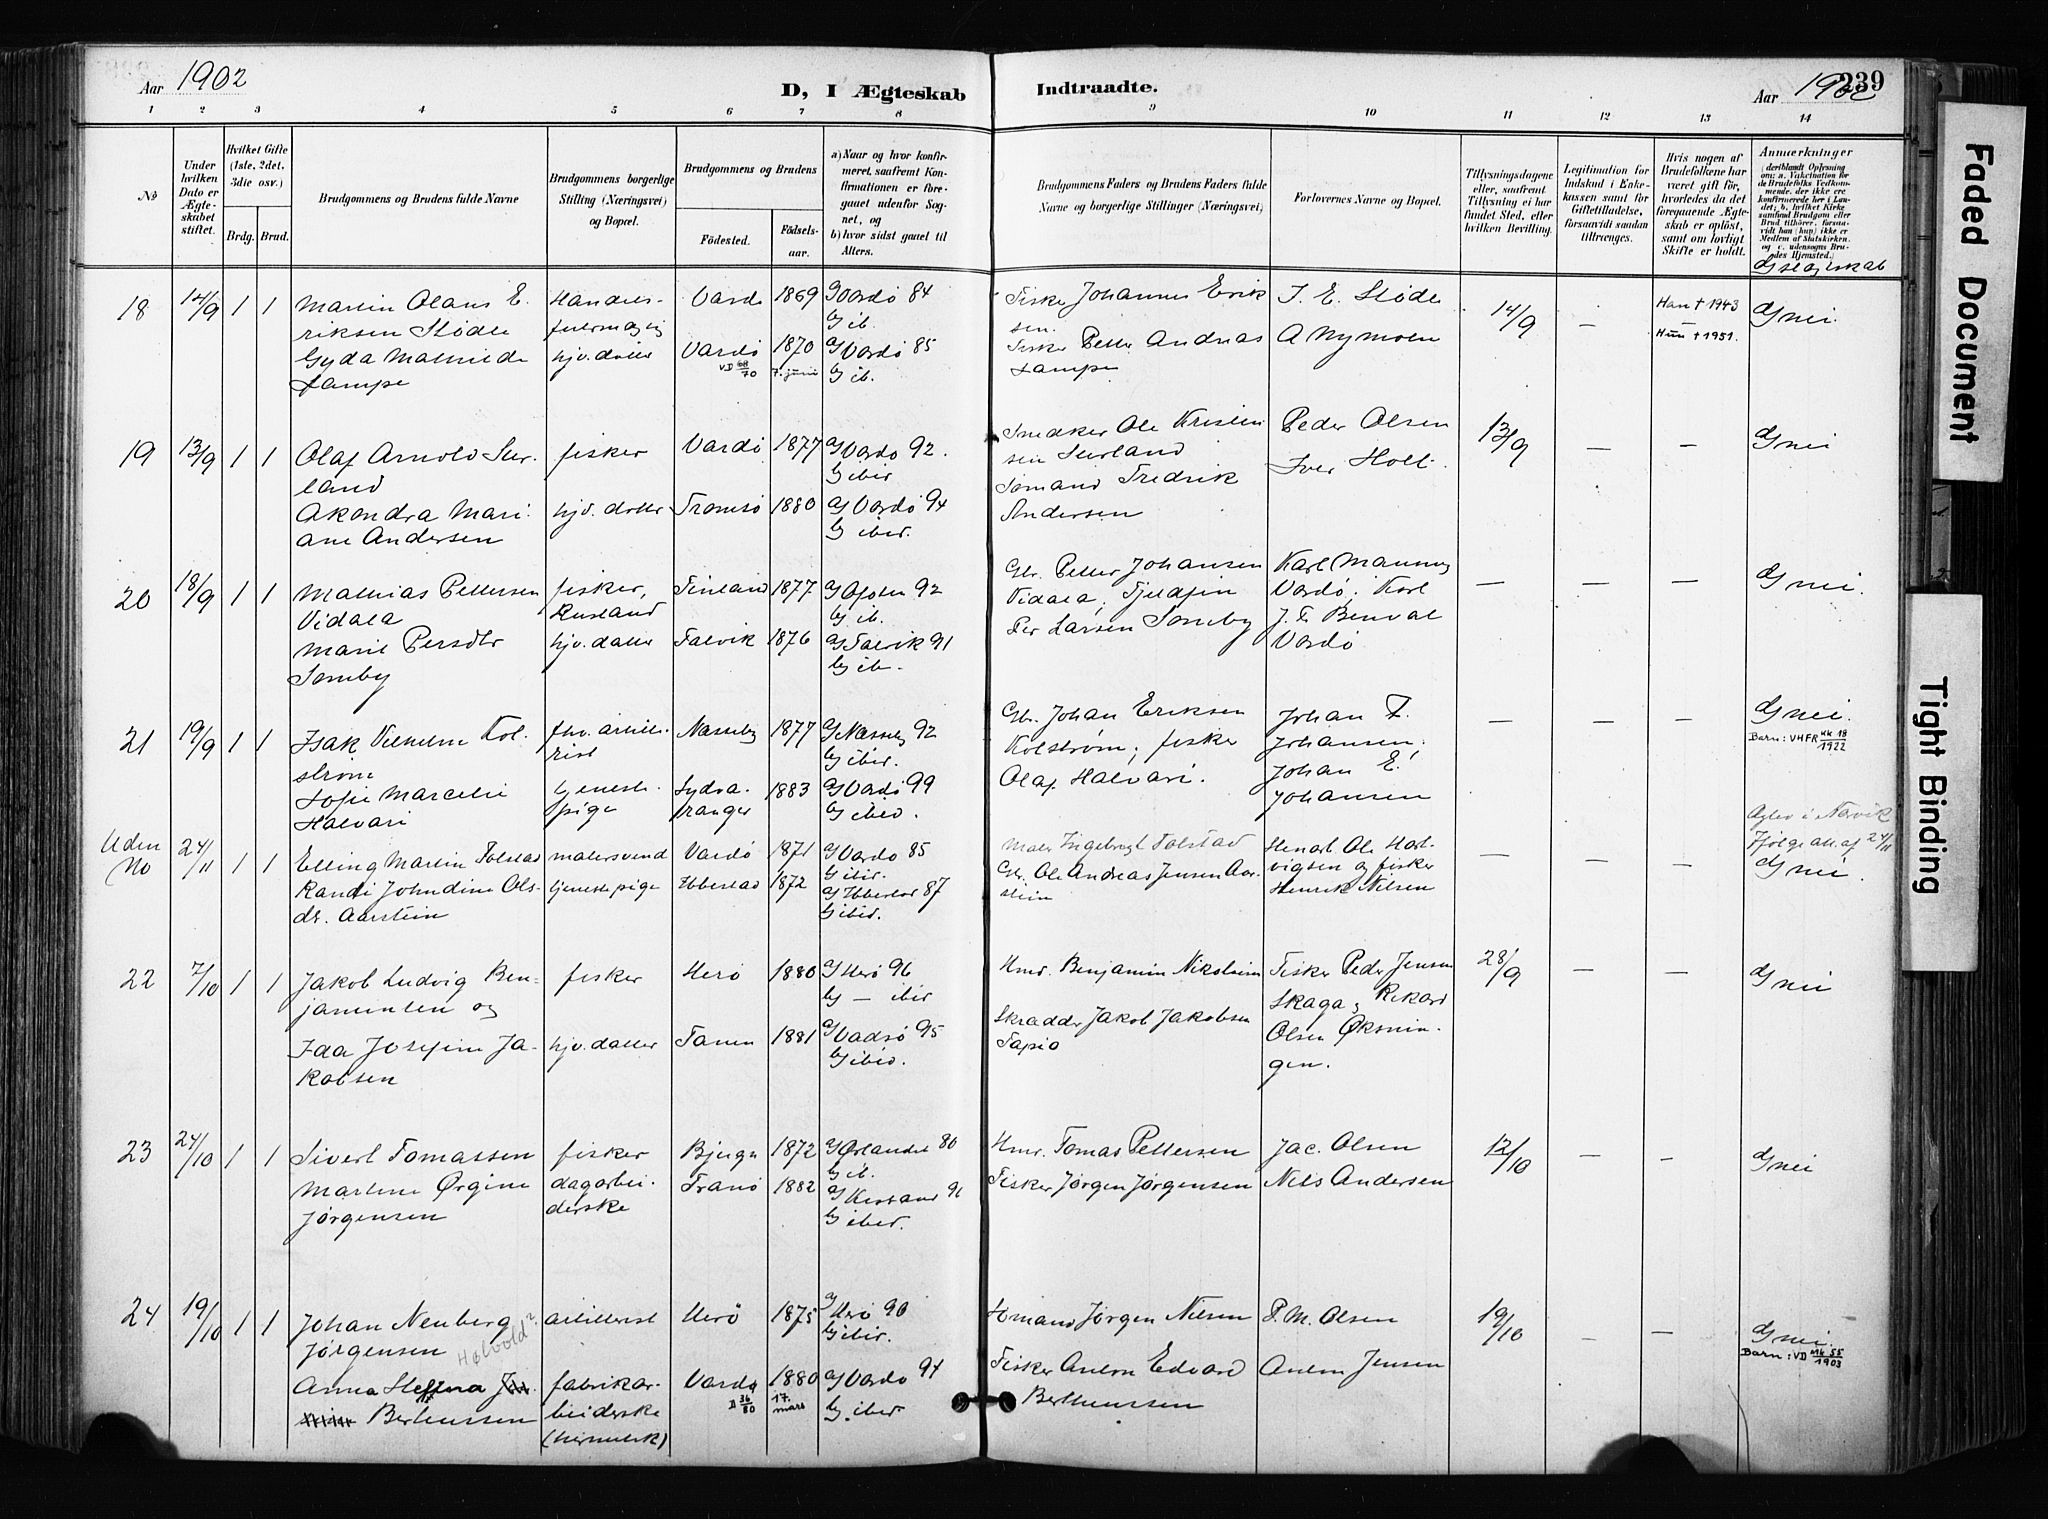 Aar 1902
D, I Ægteskab
Indtraadte.
Aar 1902
239
1 2 3 4 5 6 7 8 9 10 11 12 13 14
No
Under hvilken Dato er Ægteskabet stiftet.
Hvilket Gifte (1ste, 2det, 3die osv.)
Brdg. Brud.
Brudgommens og Brudens fulde Navne
Brudgommens borgerlige Stilling (Næringsvei) og Bopæl.
Brudgommens og Brudens
Fødested.
Fødselsaar.
a) Naar og hvor konfirmeret, saafremt Konfirmationen er foregaaet udenfor Sognet, og
b) hvor sidst gaaet til Alters.
Brudgommens Faders og Brudens Faders fulde Navne og borgerlige Stillinger (Næringsvei)
Forlovernes Navne og Bopæl.
Tillysningsdagene eller, saafremt Tillysning ei har fundet Sted, efter hvilken Bevilling.
Legitimation for Indskud i Enkekassen samt for Giftetilladelse, forsaavidt saadan tiltrænges.
Hvis nogen af Brudefolkene har været gift før, hvorledes da det foregaaende Ægteskab er opløst, samt om lovligt Skifte er holdt.
Anmærkninger
18 14/9 1 1
Martin Olaus E.
riksen Stødle
Gyda Mathilde
Lampe
hjv. datter
Vardø 1869
Vardø 1870
VD 68/70 7. juni
a) Vardø 84
b) ib.
a) Vardø 85
b) ib.
Fisker Johannes Erik
sen.
Fisker Petter Andreas
Lampe
J. E. Stødle
A Nymoen
14/9
–
Han † 1943
–
Hun † 1951.
a) nei.
19 13/9 1 1
Olaf Arnold
land
Mari
ane Andersen
fisker
hjv. datter
Vardø 1877
Tromsø 1880
a) Vardø 92.
b) ibid
a) Vardø 94
b) ibid.
Snedker Ole Kristen
sen
Sømand Fredrik
Andersen
Peder Olsen
Iver Holt.
13/9
– –
a) nei
20 18/9 1 1
Mathias Pettersen
Vidala
Marie Persdtr
Somby
fisker,
Rusland
hjv. datter
Finland 1877
Talvik 1876
92
b) ib.
a) Talvik 91
b) ib.
Gbr. Petter Johansen
Vidala;
Per Larsen Somby
Karl
Vardø; Karl
J. F.
Vardø
– – –
a) nei.
21 19/9 1 1
Isak Vilhelm Kol.
strøm
Sofie Marcelie
Halvari
fhv. artille.
rist
tjeneste
pige
Næsseby 1877
Sydva.
ranger 1883
a) Næsseby 92
b) ibid.
a) Vardø 99
b) ibid.
Gbr. Johan Eriksen
Kolstrøm; fisker
Olaf Halvari.
Johan F.
Johansen;
Johan E.
Johansen
– – –
a) nei.
Barn: VHFR KK 18/1922
Uden
No 24/11 1 1
Elling Martin Tolstad
Randi Johndine Ols-
dr. Aarstein
malersvend
tjenestepige
Vardø 1871
Ibbestad 1872
a) Vardø 85
b) ibid.
a) Ibbestad 87
b) ibid.
Maler Ingebrigt Tolstad
Gbr. Ole Andreas Jensen Aar.
stein
Ole Hart
vigsen og fisker
Henrik Nilsen
– – –
i Narvik
Ifølge att. af 24/11
a) nei.
22 7/10 1 1
Jakob Ludvig Ben-
jaminsen og
Ida Josefine Ja-
kobsen
fisker
hjv. datter
Herø 1880
Tanen 1881
a) Herø 96
b) – ibid
a) Vadsø 95
b) ibid.
Hmd. Benjamin Nikolaisen
Skrædder Jakob Jakobsen
Tapio
Fisker Peder Jensen
Skaga; Rikard
Olsen Øksnin-
gen.
28/9
– –
a) nei
23 24/10 1 1
Sivert Tomassen
Martine Ørgine
Jørgensen
fisker
dagarbei.
derske
Bjugn 1872
Tranø 1882
a) Ørlandet 80
b) ib.
b) ibid.
Hmd. Tomas Pettersen
Fisker Jørgen Jørgensen
Jac. Olsen
Nils Andersen
12/10
– –
a) nei
24 19/10 1 1
Johan Neuberg
Jørgensen
Holvold?
Anna Steffina
Bertheussen
artillerist
fabrikar-
beiderske
Herø 1875
Vardø 1880
D 36/80 17. mars
a) Herø 90
b) ibid.
a) Vardø 94
b) ibid.
Hmand Jørgen Nilsen
Fisker Anton Edvard
Bertheussen
P. M. Olsen
Anton Jensen
19/10
– –
a) nei.
Barn: VD Mk 55/1903
Faded Document
Tight Binding